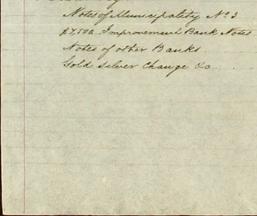 Notes of Municipality No 3
$7,500 Improvement Bank Notes
Notes of other Banks
Gold silver Change &c